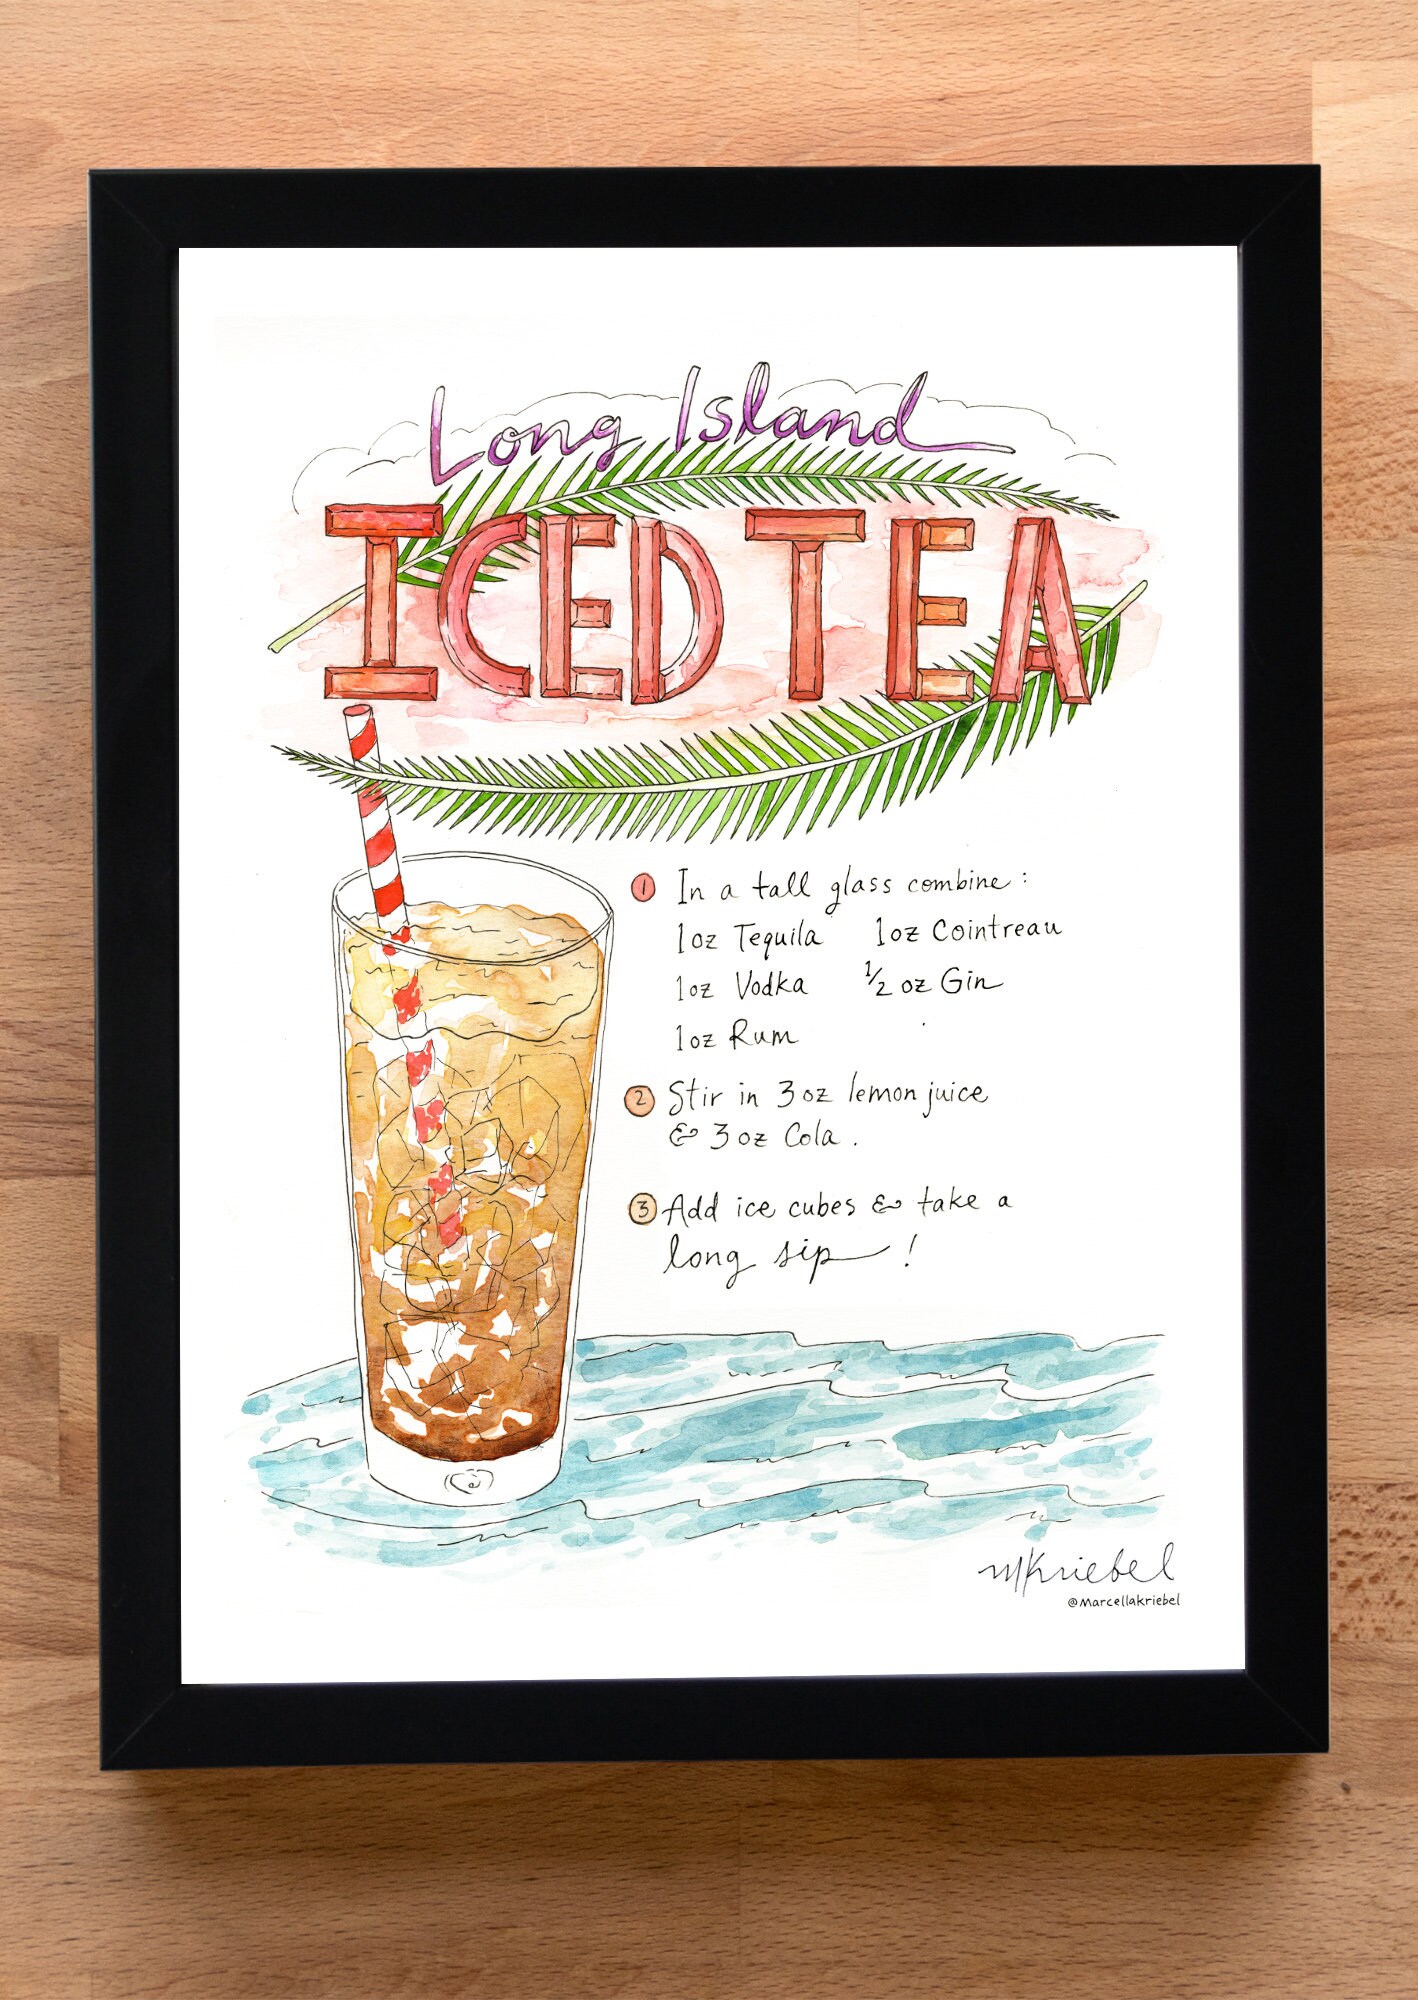 Long Island
ICED TEA
1 In a tall glass combine:
1oz Tequila 1oz Cointreau
1oz Vodka 1/2 oz Gin
1oz Rum
2 Stir in 3oz lemon juice
& 3oz Cola.
3 Add ice cubes & take a
long sip!
MKriebel
@Marcellakriebel